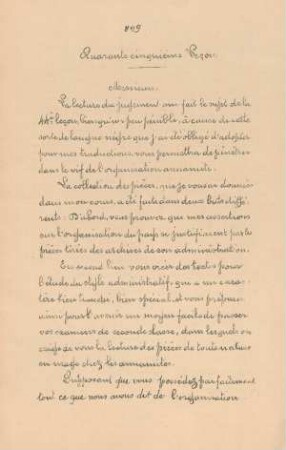 809
Quarante cinquième Leçon.
Messieurs.
La lecture du jugement qui fait le sujet de la
44e leçon, bien qu'un peu pénible, à cause de cette
sorte de langue nègre que j'ai été obligé d'adopter
pour mes traductions vous permettra de pénétrer
dans le vif de l'organisation annamite.
La collection des pièces, que je vous ai données
dans mon cours, a été faite dans deux buts diffé-
rents: D'abord, vous prouver que mes assertions
sur l'organisation du pays se justifiaient par les
pièces tirées des archives de son administration.
En second lieu vous créer des textes pour
l'étude du style administratif, qui a un carac-
tère bien tranché, bien spécial et vous préparer
ainsi pour l'avenir un moyen facile de passer
vos examens de seconde classe, dans lesquels on
exige de vous la lecture des pièces de toute nature
en usage chez les annamites.
Supposant que vous possédez parfaitement
tout ce que nous avons dit de l'organisation